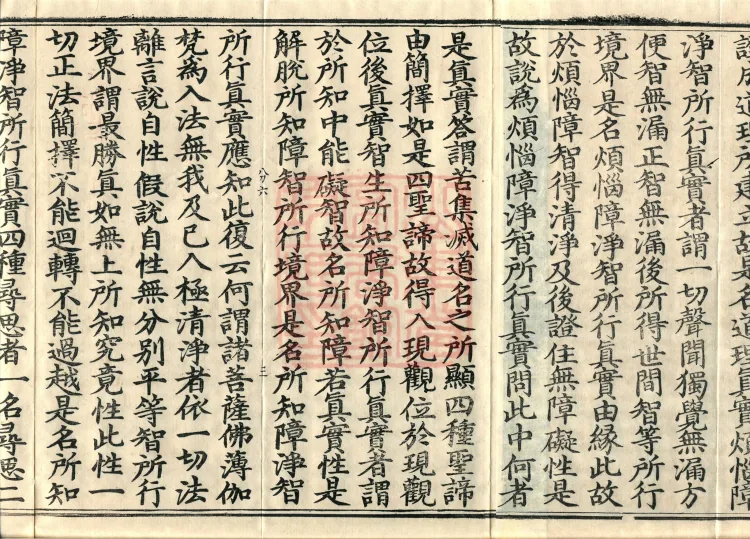 成道理所建立故是名道理眞實煩惱障
淨智所行眞實者謂一切聲聞獨覺無漏方
便智無漏正智無漏後所得世間智等所行
境界是名煩惱障淨智所行眞實由緣此故
於煩惱障智得清淨及後證住無障礙性是
故說為煩惱障淨智所行眞實問此中何者
是眞實答謂苦集滅道名之所顯四種聖諦
由簡擇如是四聖諦故得入現觀位於現觀
位後眞實智生所知障淨智所行眞實者謂
於所知中能礙智故名所知障若眞實性是
解脫所知障智所行境界是名所知障淨智
六 三
所行眞實應知此復云何謂諸菩薩佛薄伽
梵為入法無我及已入極清淨者依一切法
離言說自性假說自性無分別平等智所行
境界謂最勝眞如無上所知究竟性此性一
切正法簡擇不能迴轉不能過越是名所知
障淨智所行眞實四種尋思者一名尋思二